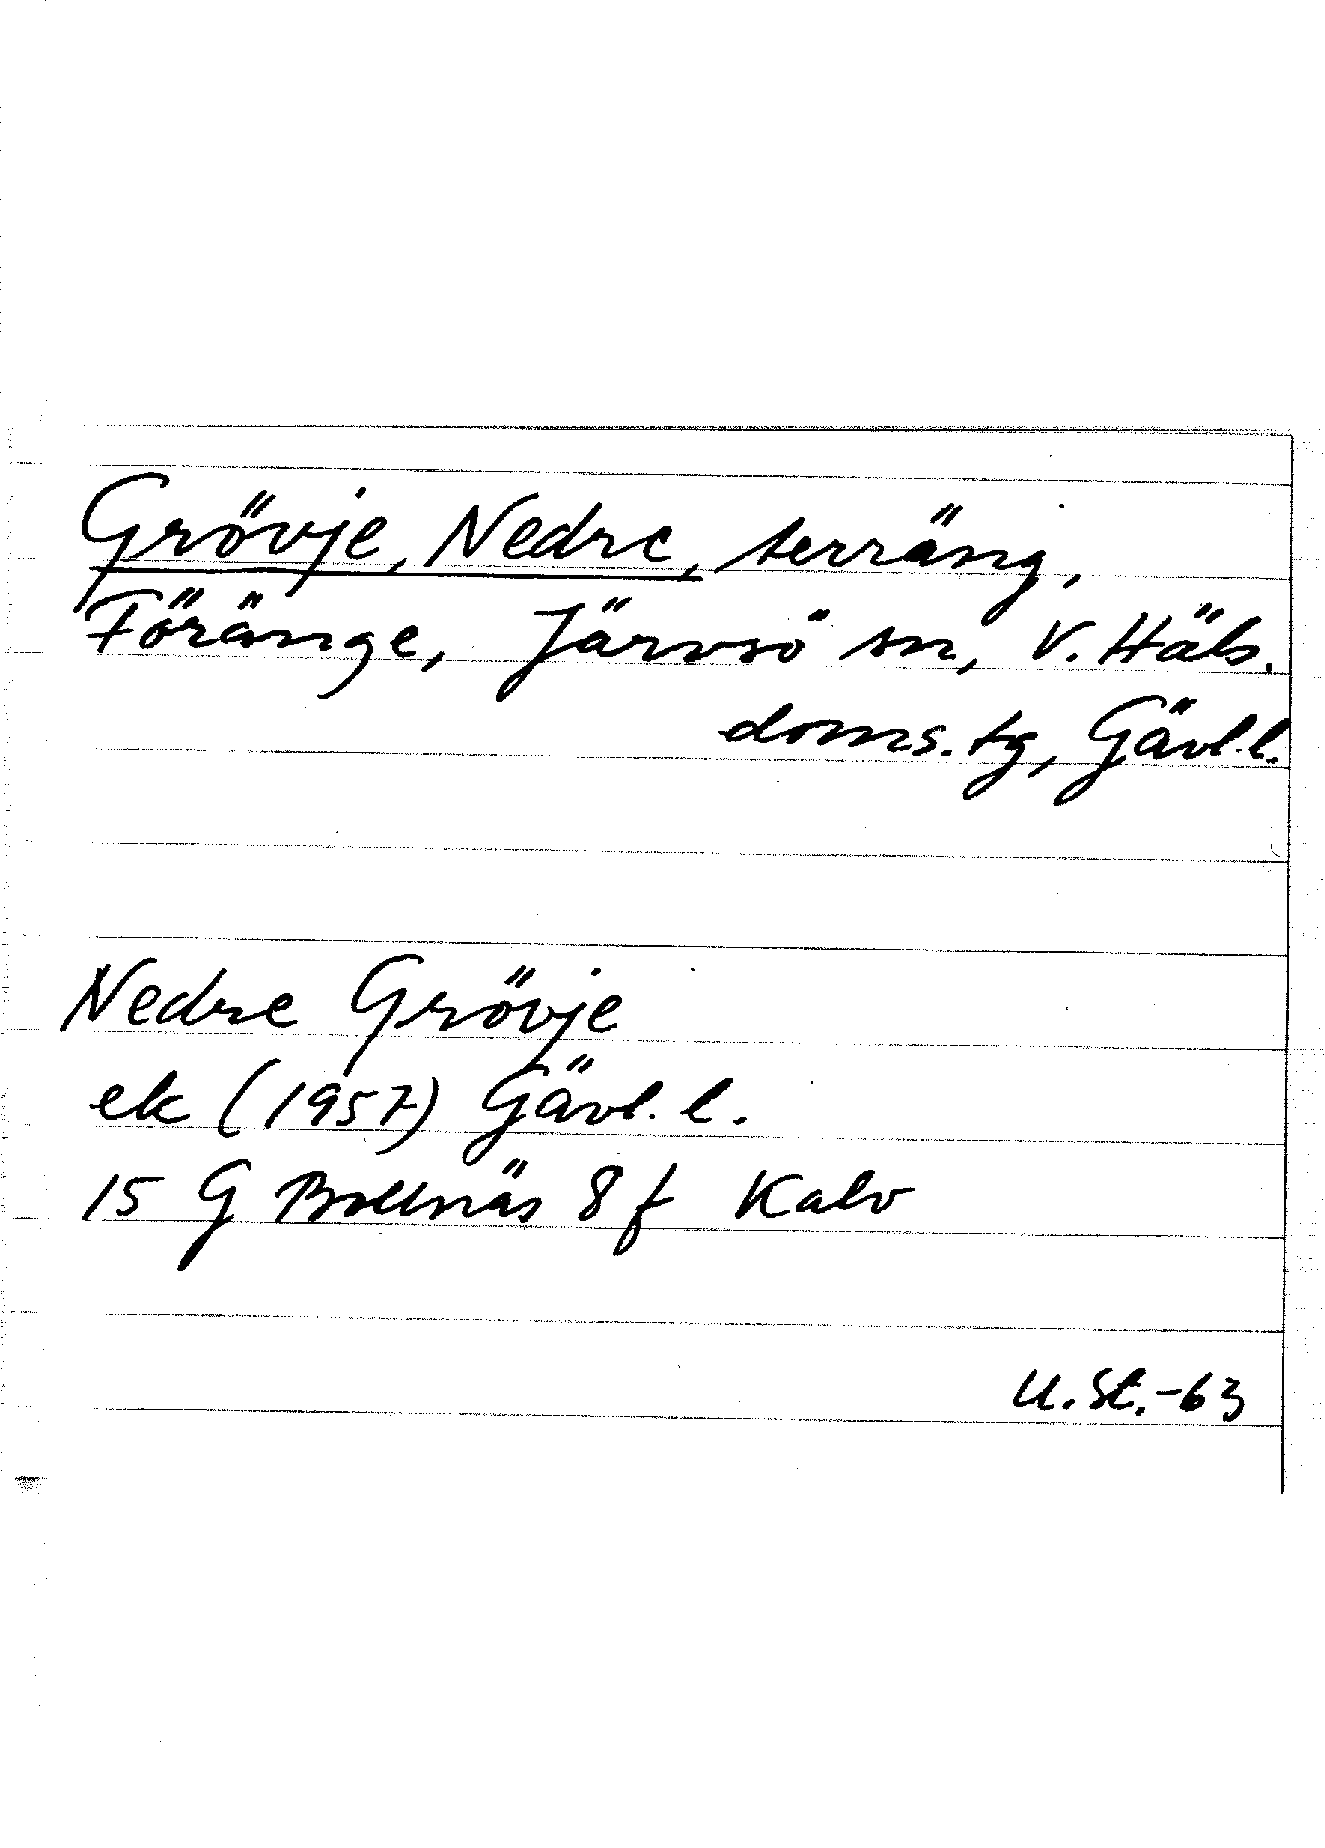 Grövje, Nedre, terräng,
Föränge, Järvsö sn, V. Häls.
doms. tg, Gävl. l.
Nedre Grövje
ek (1957) Gävl. l.
15 G Bollnäs 8 f Kalv
U. St. -63